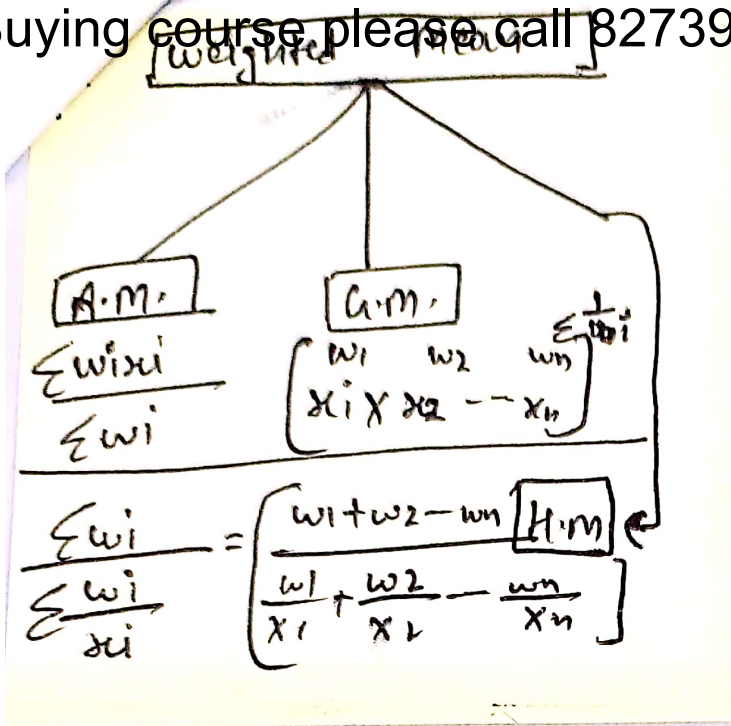 Buying course please call 82739
weighted Mean
A.M. G.M.
Σwixi / Σwi
[x1^w1 × x2^w2 -- xn^wn]^1/Σwi
Σwi / Σ wi/xi = [w1+w2-wn / w1/x1 + w2/x2 - wn/xn]
H.M